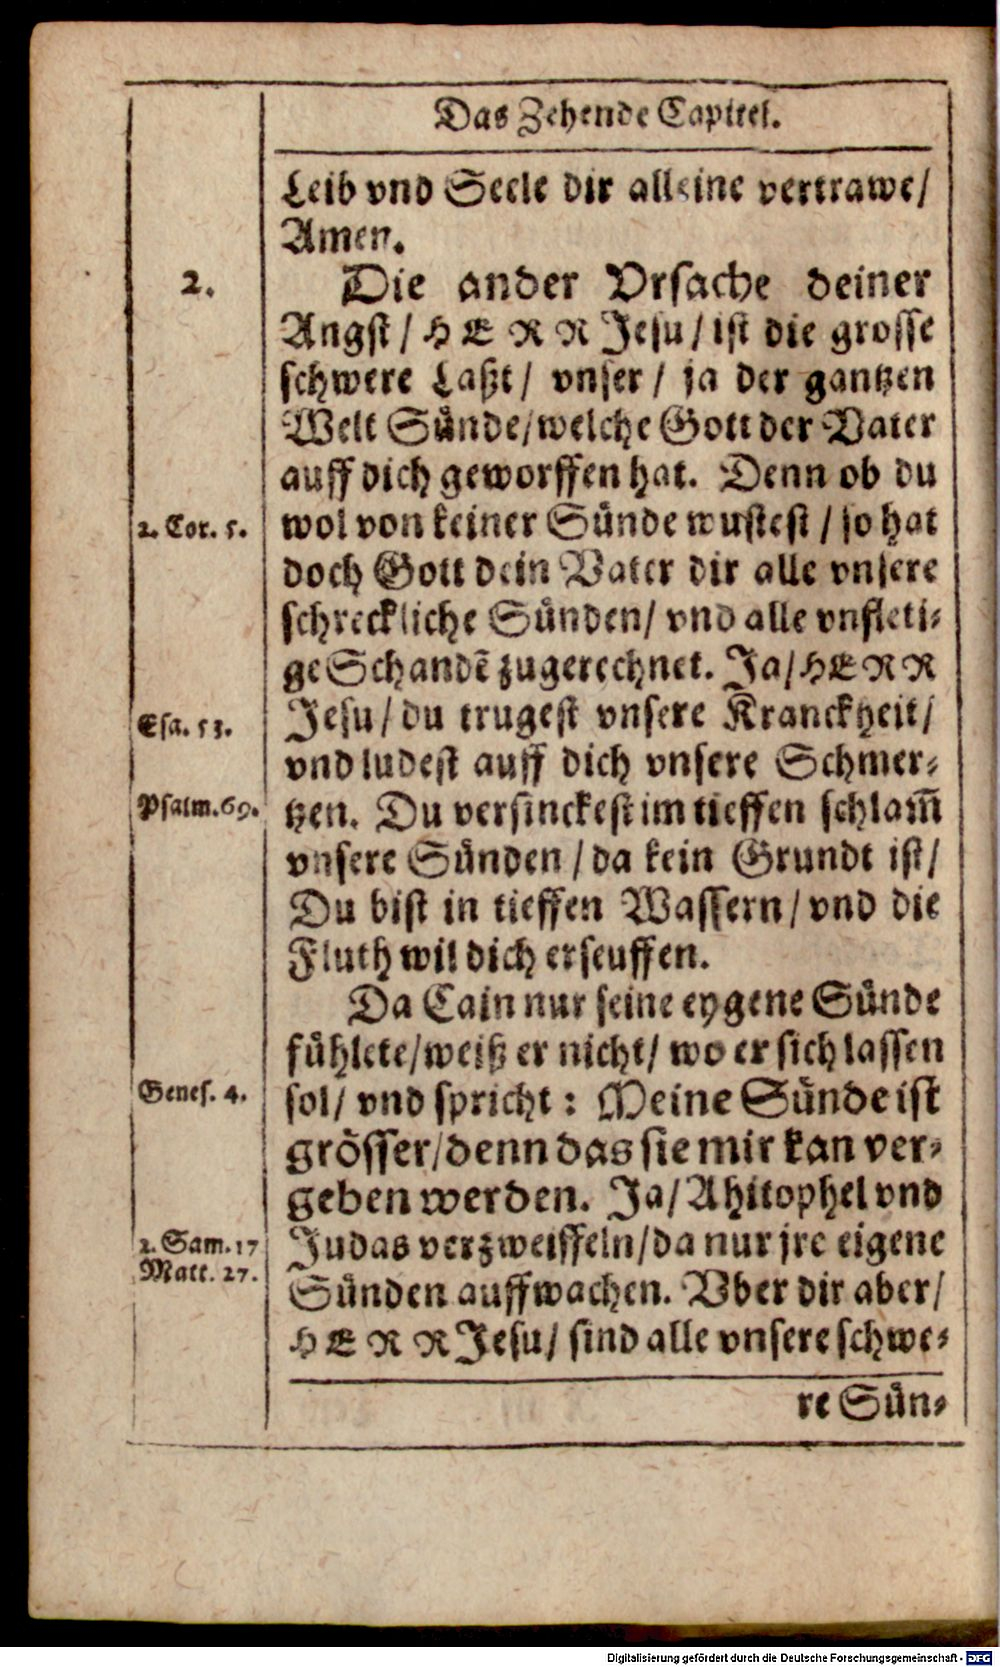 Das Zehende Capitel.
Leib vnd Seele dir alleine vertrawe/
Amen.
2.
Die ander Vrsache deiner
Angst/ HERR Jesu/ ist die grosse
schwere Laßt/ vnser/ ja der gantzen
Welt Sünde/welche Gott der Vater
auff dich geworffen hat. Denn ob du
2. Cor. 5.
wol von keiner Sünde wustest/ so hat
doch Gott dein Vater dir alle vnsere
schreckliche Sünden/ vnd alle vnfleti-
ge Schandẽ zugerechnet. Ja/HERR
Esa. 53.
Jesu/ du trugest vnsere Kranckheit/
vnd ludest auff dich vnsere Schmer-
Psalm. 69.
tzen. Du versinckest im tieffen schlam̃
vnsere Sünden/ da kein Grundt ist/
Du bist in tieffen Wassern/ vnd die
Fluth wil dich erseuffen.
Da Cain nur seine eygene Sünde
fühlete/weiß er nicht/ wo er sich lassen
Genes. 4.
sol/ vnd spricht: Meine Sünde ist
grösser/denn das sie mir kan ver-
geben werden. Ja/ Ahitophel vnd
2. Sam. 17
Judas verzweiffeln/da nur jre eigene
Matt. 27.
Sünden auffwachen. Vber dir aber/
HERR Jesu/ sind alle vnsere schwe-
re Sün-
Digitalisierung gefördert durch die Deutsche Forschungsgemeinschaft - DFG